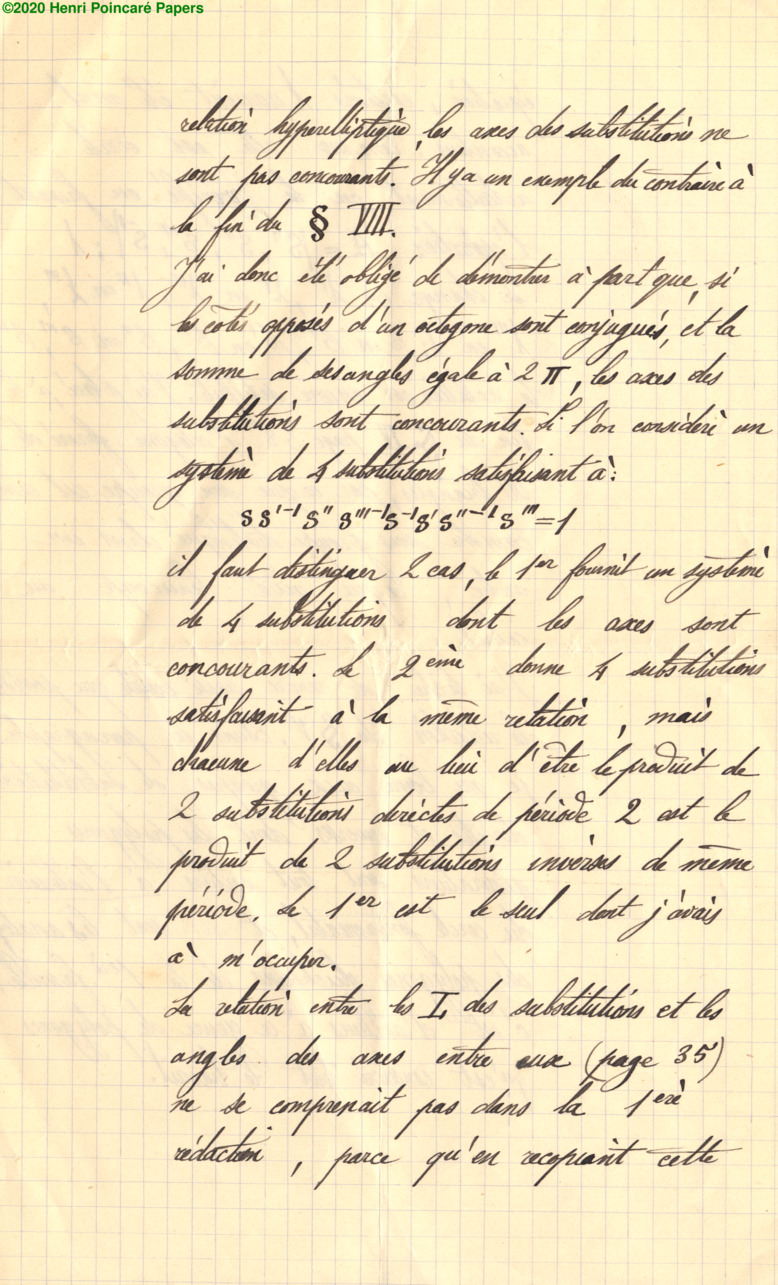 ©2020 Henri Poincaré Papers
relation hyperelliptique, les axes des substitutions ne
sont pas concourants. Il y a un exemple du contraire à
la fin du § VIII.
J'ai donc été obligé de démontrer à part que, si
les cotés opposés d'un octogone sont conjugués, et la
somme de ses angles égale à 2 π, les axes des
substitutions sont concourants. Si l'on considère un
système de 4 substitutions satisfaisant à :
S S'⁻¹ S'' S'''⁻¹ S⁻¹ S' S''⁻¹ S''' = 1
il faut distinguer 2 cas, le 1er fournit un système
de 4 substitutions dont les axes sont
concourants. Le 2ème donne 4 substitutions
satisfaisant à la même relation, mais
chacune d'elles au lieu d'être le produit de
2 substitutions directes de période 2 est le
produit de 2 substitutions inverses de même
période. Le 1er est le seul dont j'avais
à m'occuper.
La relation entre les L des substitutions et les
angles des axes entre eux (page 35)
ne se comprenait pas dans la 1ère
rédaction, parce qu'en recopiant cette